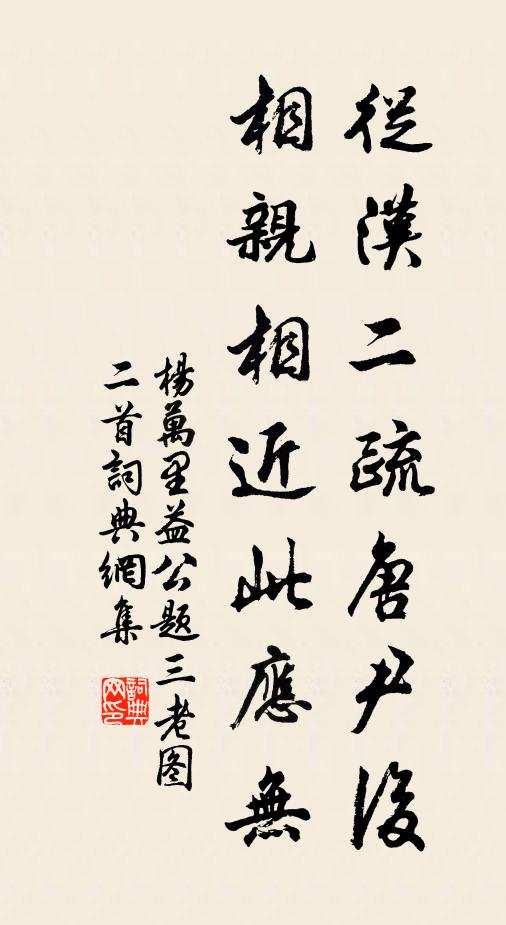 從漢二疏唐尹後
相親相近此應無
楊萬里益公題三老图
二首詞典網集
詞典
网印